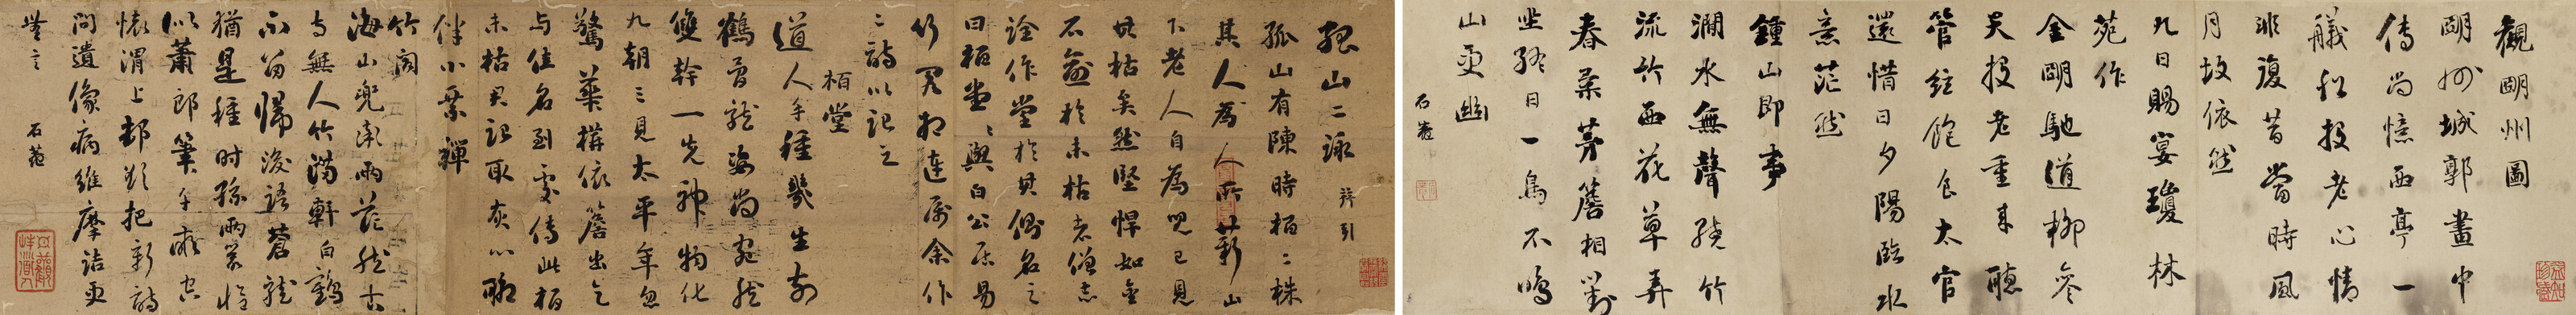 觀明州圖
明州城郭畫中
傳尚憶西亭一
艤船投老心情
非復昔當時風
月故依然
九日賜宴瓊林
苑作
金明馳道柳參
天投老重來聽
管絃飽食太官
還惜日夕陽臨水
意茫然
鍾山即事
澗水無聲繞竹
流竹西花草弄
春柔茅簷相對
坐終日一鳥不鳴
山更幽
石菴
孤山二詠 并引
孤山有陳時栢二株
其人爲人所薪山
下老人自為兒已見
其枯矣然堅悍如金
石愈於未枯者僧志
詮作堂於其側名之
曰栢堂堂與白公居易
竹閣相連屬余作
二詩以記之
栢堂
道人手種幾生前
鶴骨龍姿尚宛然
雙幹一先神物化
九朝三見太平年忽
驚華構依簷出乞
与佳名到處傳此栢
未枯君記取灰心聊
伴小乘禪
竹閣
海山兜率兩茫然古
寺無人竹滿軒白鶴
不留歸後語蒼龍
猶是種時孫兩叢恰
似蕭郎筆千畝空
懷渭上邨欲把新詩
問遺像病維摩詰更
無言
石菴